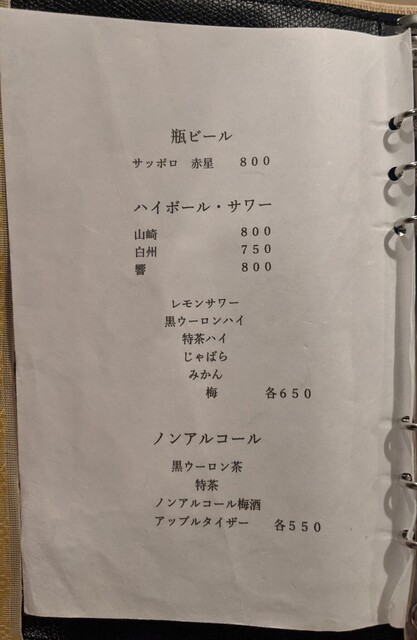 瓶ビール
サッポロ 赤星 ８００
ハイボール・サワー
山崎 ８００
白州 ７５０
響 ８００
レモンサワー
黒ウーロンハイ
特茶ハイ
じゃばら
みかん
梅 各６５０
ノンアルコール
黒ウーロン茶
特茶
ノンアルコール梅酒
アップルタイザー 各５５０